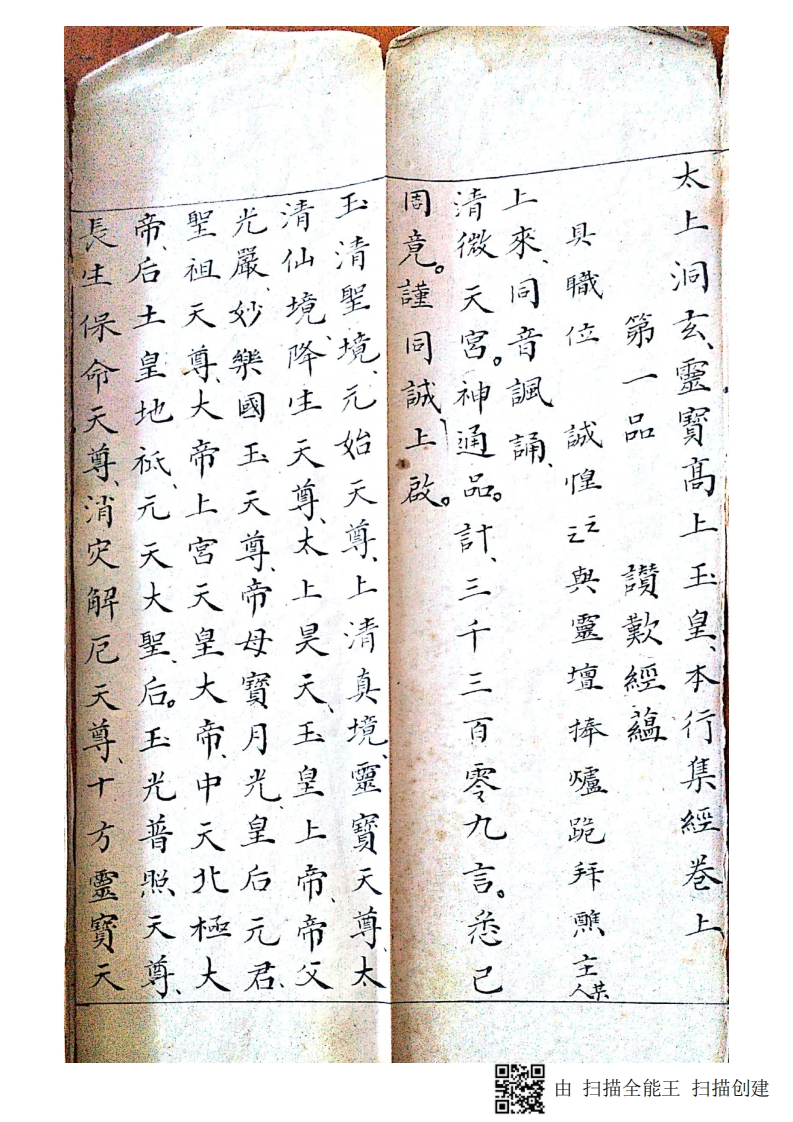 太上洞玄、靈寶高上玉皇、本行集經卷上
第一品　讃歎經蘊
具職位　誠惶之之與靈壇捧爐跪拜醮主某人
上來、同音諷誦、
清微天宮。神通品。計、三千三百零九言。悉已
周竟。謹同誠上啟。
玉清聖境、元始天尊、上清真境、靈寶天尊、太
清仙境、降生天尊、太上昊天、玉皇上帝、帝父
光嚴、妙樂國玉天尊、帝母寶月光、皇后元君、
聖祖天尊、大帝上宮天皇大帝、中天北極大
帝、后土皇地祇、元天大聖、后。玉光普照、天尊、
長生保命天尊、消灾解厄天尊、十方靈寶天
由 扫描全能王 扫描创建